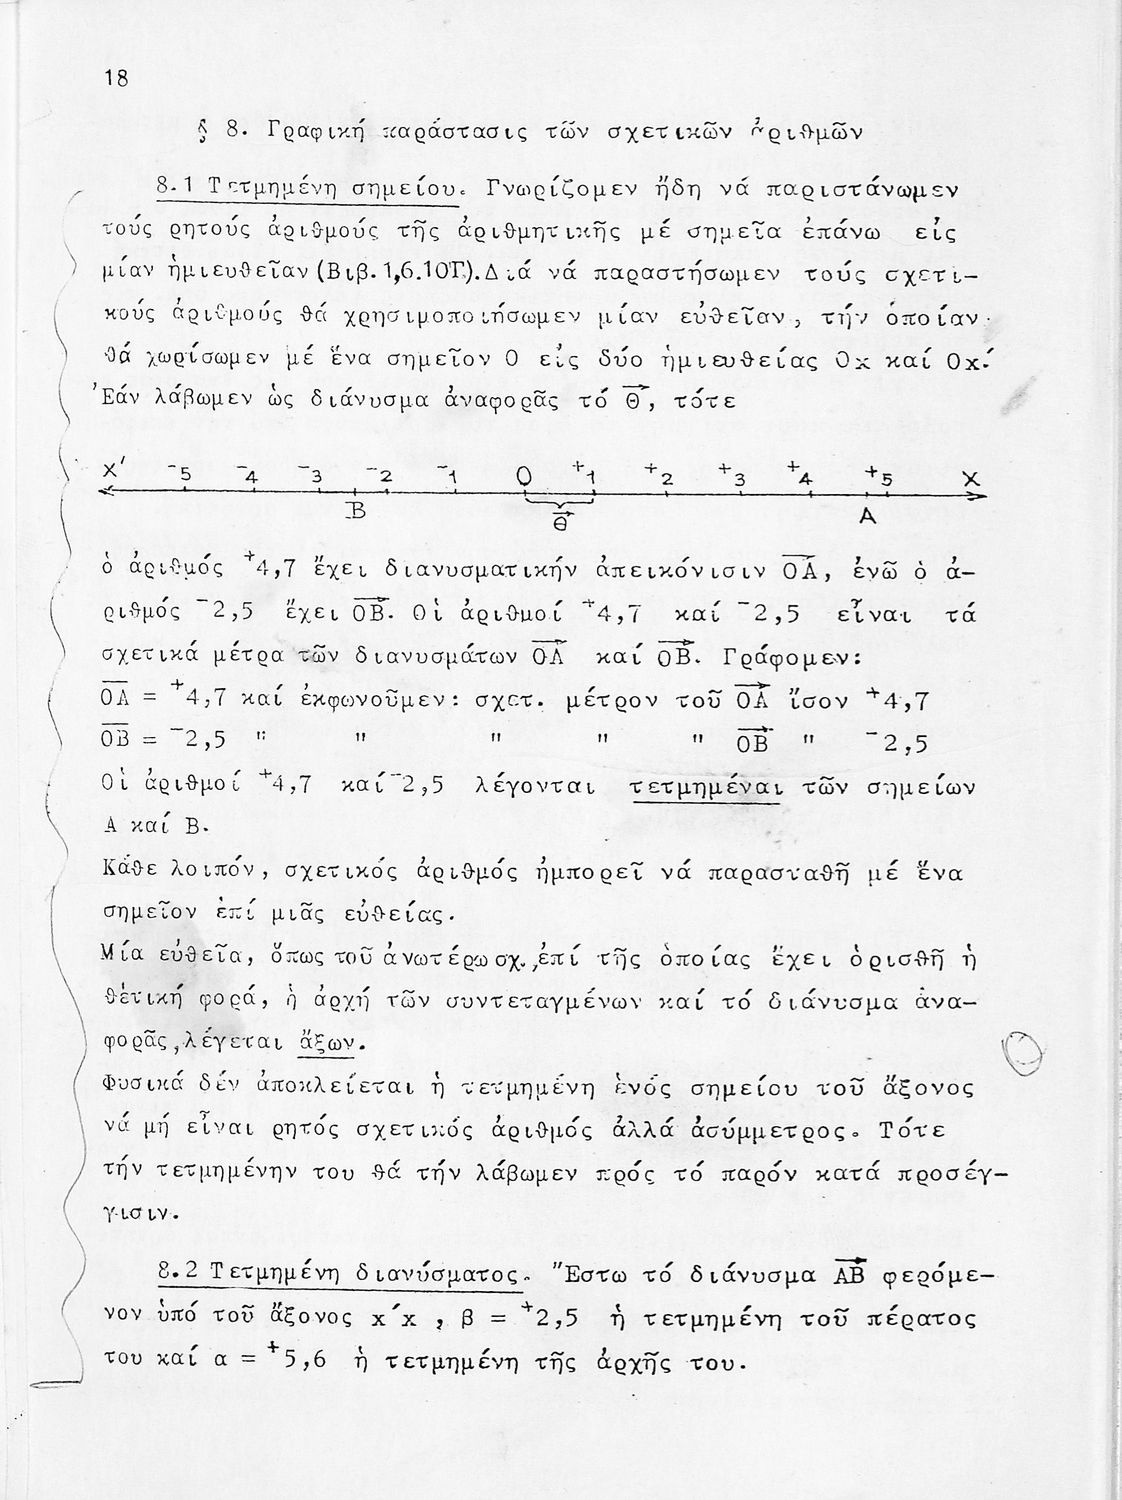 18
§ 8. Γραφική παράστασις τῶν σχετικῶν ἀριθμῶν
8.1 Τετμημένη σημείου. Γνωρίζομεν ἤδη νά παριστάνωμεν
τούς ρητούς ἀριθμούς τῆς ἀριθμητικῆς μέ σημεῖα ἐπάνω εἰς
μίαν ἡμιευθεῖαν (Βιβ.1,6.10Γ).Διά νά παραστήσωμεν τούς σχετι-
κούς ἀριθμούς θά χρησιμοποιήσωμεν μίαν εὐθεῖαν, τήν ὁποίαν
θά χωρίσωμεν μέ ἕνα σημεῖον Ο εἰς δύο ἡμιευθείας Οx καί Οx'.
Ἐάν λάβωμεν ὡς διάνυσμα ἀναφορᾶς τό θ⃗, τότε
x' ⁻5 ⁻4 ⁻3 ⁻2 ⁻1 0 ⁺1 ⁺2 ⁺3 ⁺4 ⁺5 x
Β θ⃗ Α
ὁ ἀριθμός ⁺4,7 ἔχει διανυσματικήν ἀπεικόνισιν ΟΑ⃗, ἐνῶ ὁ ἀ-
ριθμός ⁻2,5 ἔχει ΟΒ⃗. Οἱ ἀριθμοί ⁺4,7 καί ⁻2,5 εἶναι τά
σχετικά μέτρα τῶν διανυσμάτων ΟΑ⃗ καί ΟΒ⃗. Γράφομεν:
Ο̅Α̅ = ⁺4,7 καί ἐκφωνοῦμεν: σχετ. μέτρον τοῦ ΟΑ⃗ ἴσον ⁺4,7
Ο̅Β̅ = ⁻2,5 " " " " " ΟΒ⃗ " ⁻2,5
Οἱ ἀριθμοί ⁺4,7 καί ⁻2,5 λέγονται τετμημέναι τῶν σημείων
Α καί Β.
Κάθε λοιπόν, σχετικός ἀριθμός ἠμπορεῖ νά παρασταθῆ μέ ἕνα
σημεῖον ἐπί μιᾶς εὐθείας.
Μία εὐθεῖα, ὅπως τοῦ ἀνωτέρω σχ., ἐπί τῆς ὁποίας ἔχει ὁρισθῆ ἡ
θετική φορά, ἡ ἀρχή τῶν συντεταγμένων καί τό διάνυσμα ἀνα-
φορᾶς, λέγεται ἄξων.
Φυσικά δέν ἀποκλείεται ἡ τετμημένη ἑνός σημείου τοῦ ἄξονος
νά μή εἶναι ρητός σχετικός ἀριθμός ἀλλά ἀσύμμετρος. Τότε
τήν τετμημένην του θά τήν λάβωμεν πρός τό παρόν κατά προσέγ-
γισιν.
8.2 Τετμημένη διανύσματος. Ἔστω τό διάνυσμα ΑΒ⃗ φερόμε-
νον ὑπό τοῦ ἄξονος x'x , β = ⁺2,5 ἡ τετμημένη τοῦ πέρατος
του καί α = ⁺5,6 ἡ τετμημένη τῆς ἀρχῆς του.